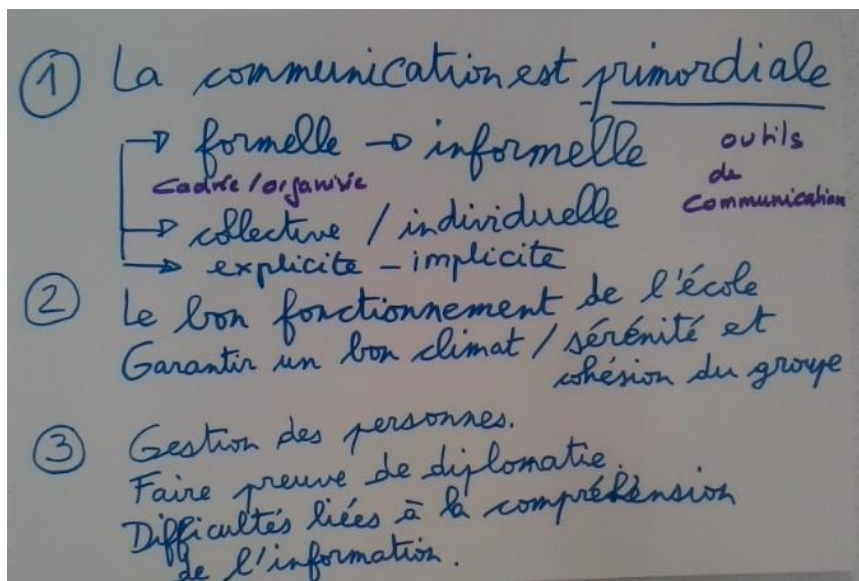 ① La communication est primordiale
→ formelle → informelle
cadrée/organisée
outils
de
communication
→ collective / individuelle
→ explicite - implicite
② Le bon fonctionnement de l'école
Garantir un bon climat / sérénité et
cohésion du groupe
③ Gestion des personnes.
Faire preuve de diplomatie.
Difficultés liées à la compréhension
de l'information.